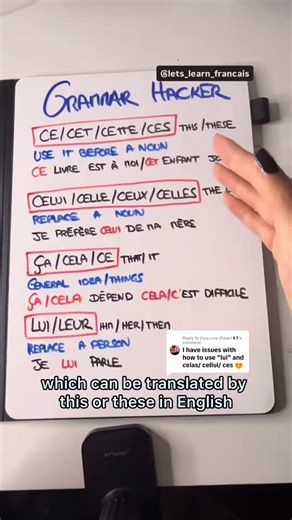 @lets_learn_francais
GRAMMAR HACKER
CE/CET/CETTE/CES THIS/THESE
USE IT BEFORE A NOUN
CE LIVRE EST À MOI/CET ENFANT JO
CELUI/CELLE/CEUX/CELLES THE
REPLACE A NOUN
JE PRÉFÈRE CELUI DE MA MÈRE
ÇA/CELA/CE THAT/IT
GENERAL IDEA/THINGS
ÇA/CELA DÉPEND CELA/C'EST DIFFICILE
LUI/LEUR HIM/HER/THEM
REPLACE A PERSON
JE LUI PARLE
comment
I have issues with
how to use "lui" and
celas/ cellui/ ces 😊
which can be translated by
this or these in English